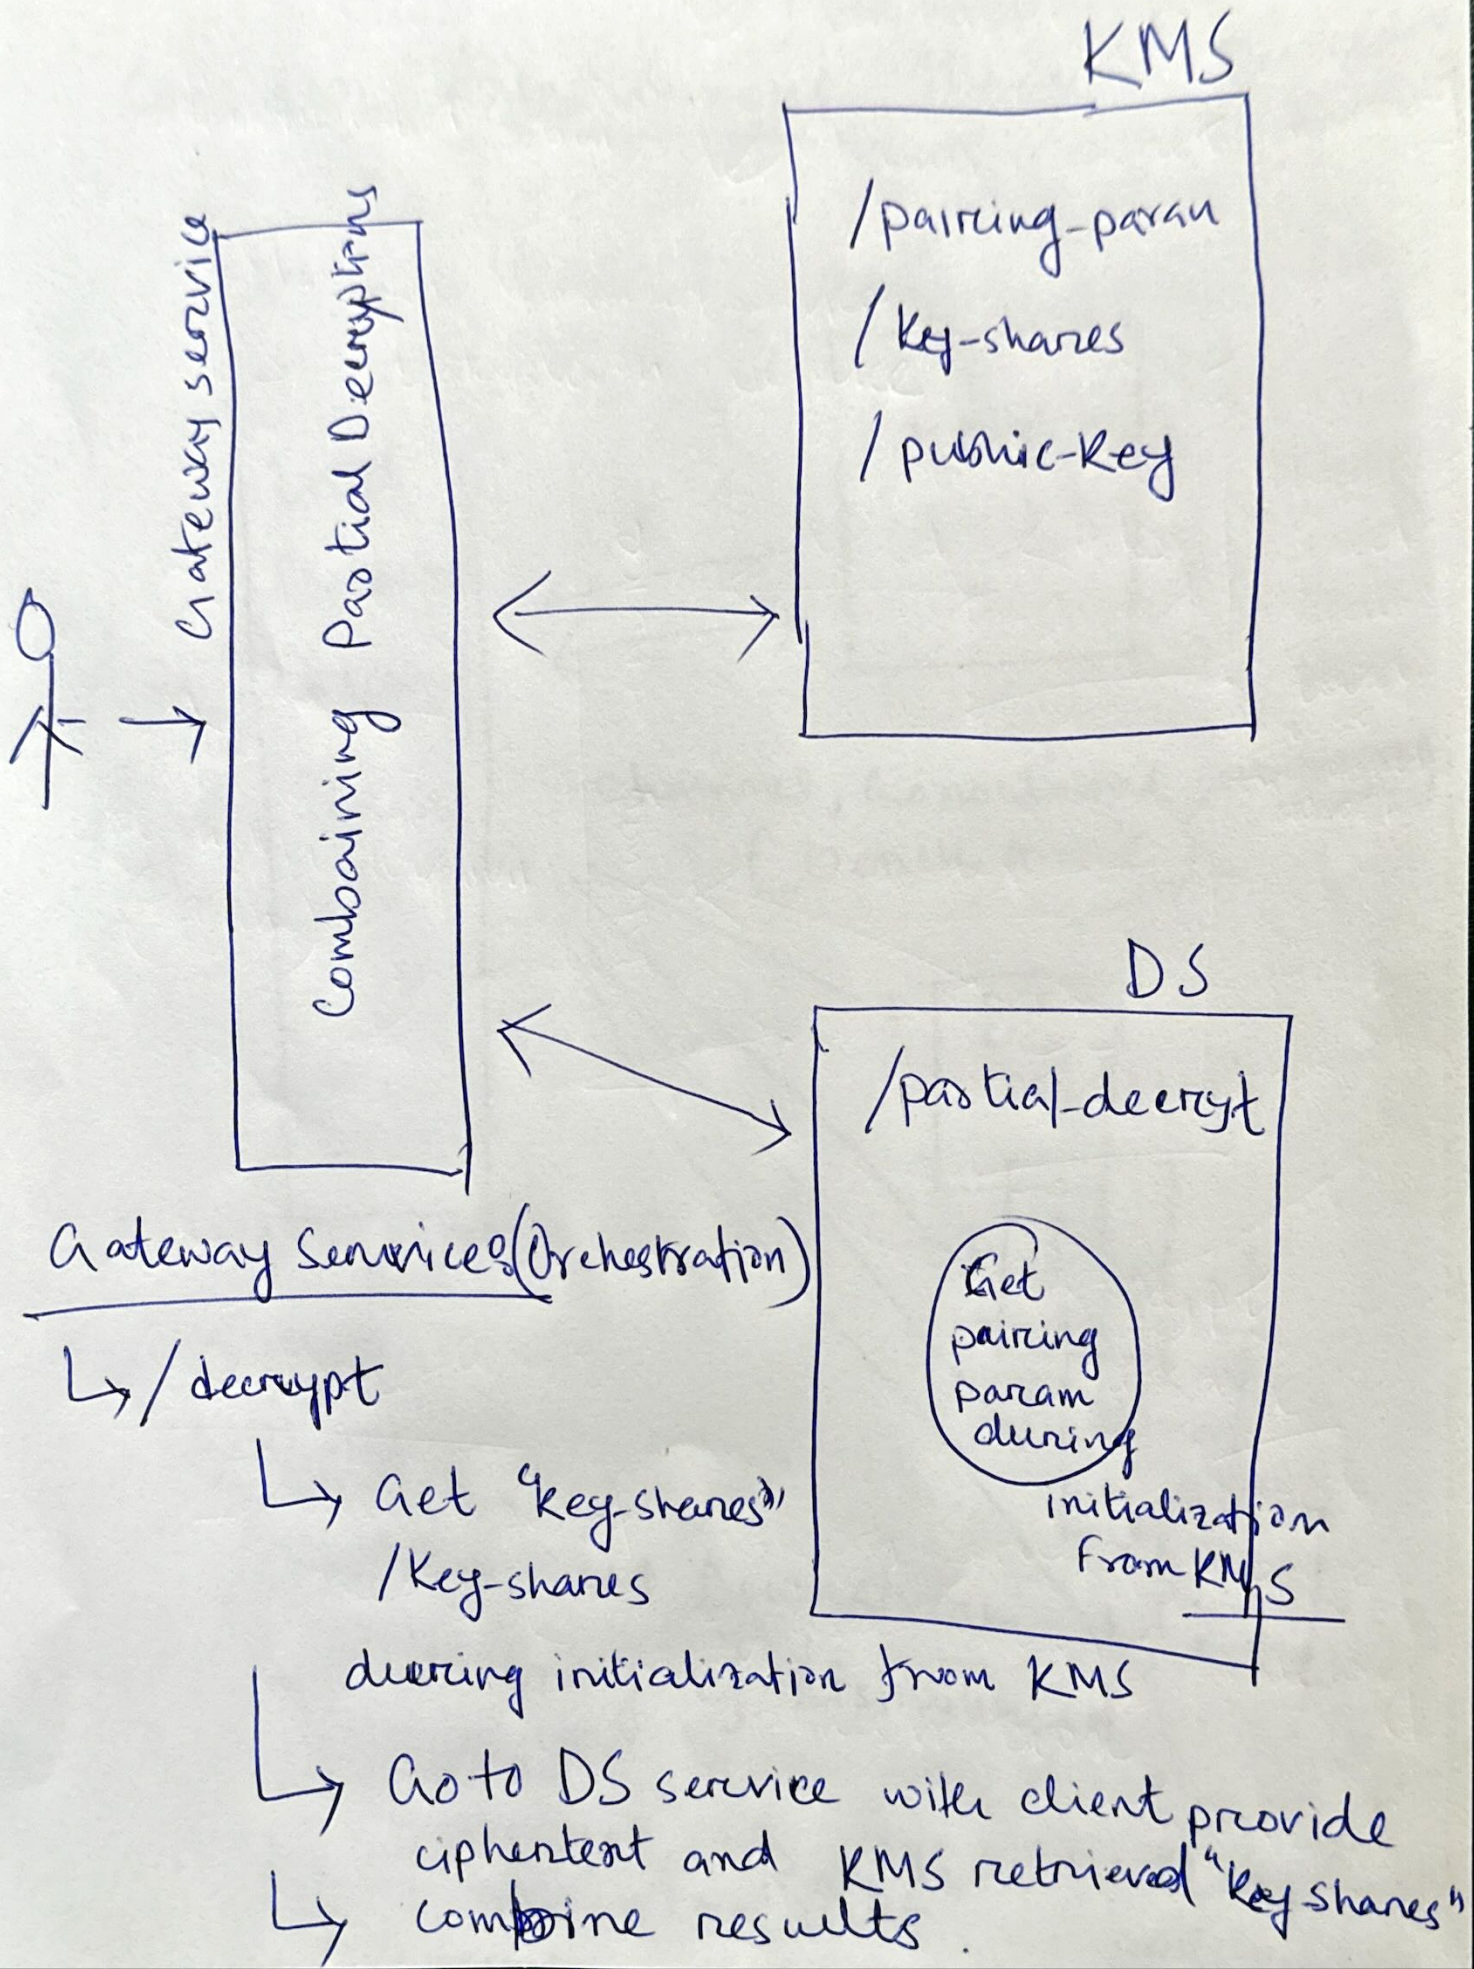 KMS
/pairing-param
/key-shares
/public-key
Gateway service
Combaining Partial Decryptions
DS
/partial-decrypt
Get
pairing
param
during
initialization
from KMS
Gateway Services(Orchestration)
/decrypt
Get "key-shares"
/key-shares
during initialization from KMS
Go to DS service with client provide
ciphertext and KMS retrieved "key shares"
combine results.